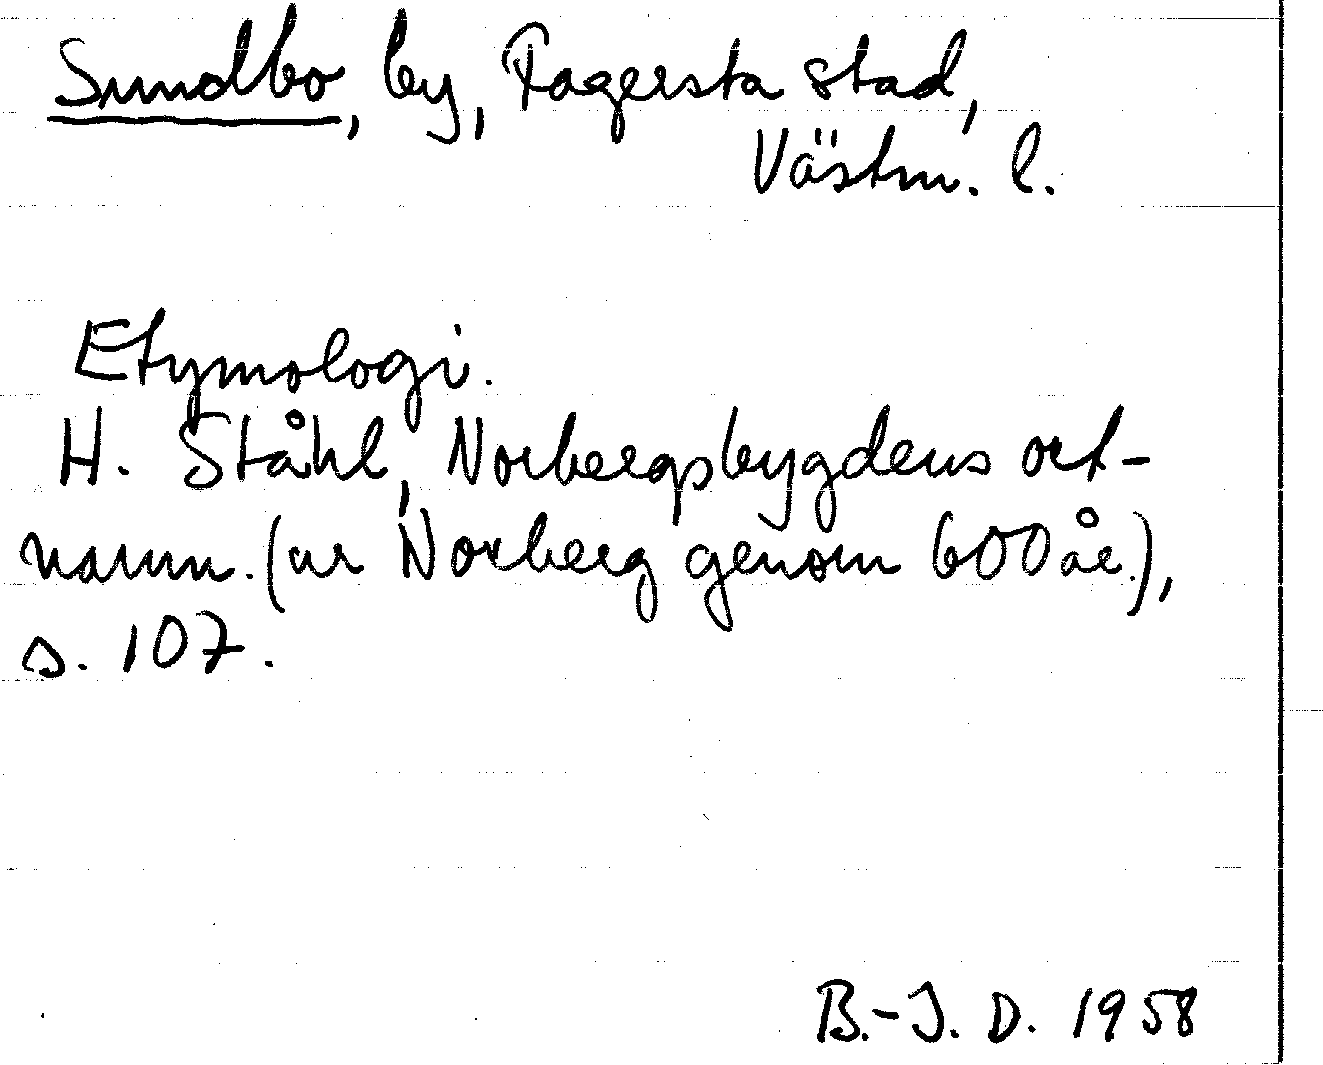 Sundbo, by, Fagersta stad,
Västm. l.
Etymologi.
H. Ståhl, Norbergsbygdens ort-
namn. (ur Norberg genom 600 år.),
s. 107.
B.-J. D. 1958